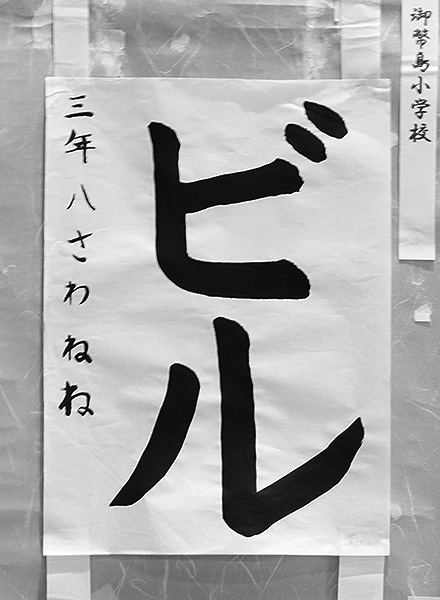 御幣島小学校
ビル
三年 八さわ ねね